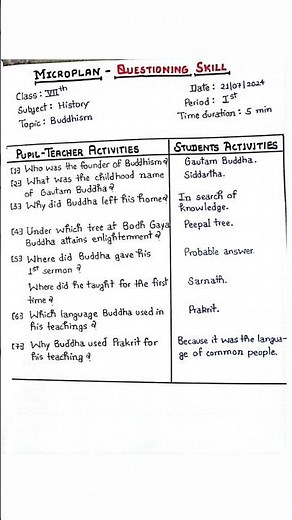 MICROPLAN - QUESTIONING SKILL
Class : VIIth
Date : 21/07/2024
Subject : History
Period : Ist
Topic : Buddhism
Time duration : 5 min
PUPIL-TEACHER ACTIVITIES
STUDENTS ACTIVITIES
[1] Who was the founder of Buddhism?
Gautam Buddha.
[2] What was the childhood name
of Gautam Buddha?
Siddartha.
[3] Why did Buddha left his home?
In search of
knowledge.
[4] Under which tree at Bodh Gaya
Buddha attains enlightenment?
Peepal tree.
[5] Where did Buddha gave his
1st sermon?
Probable answer.
Where did he taught for the first
time?
Sarnath.
[6] Which language Buddha used in
his teachings?
Prakrit.
[7] Why Buddha used Prakrit for
his teaching?
Because it was the langua-
ge of common people.